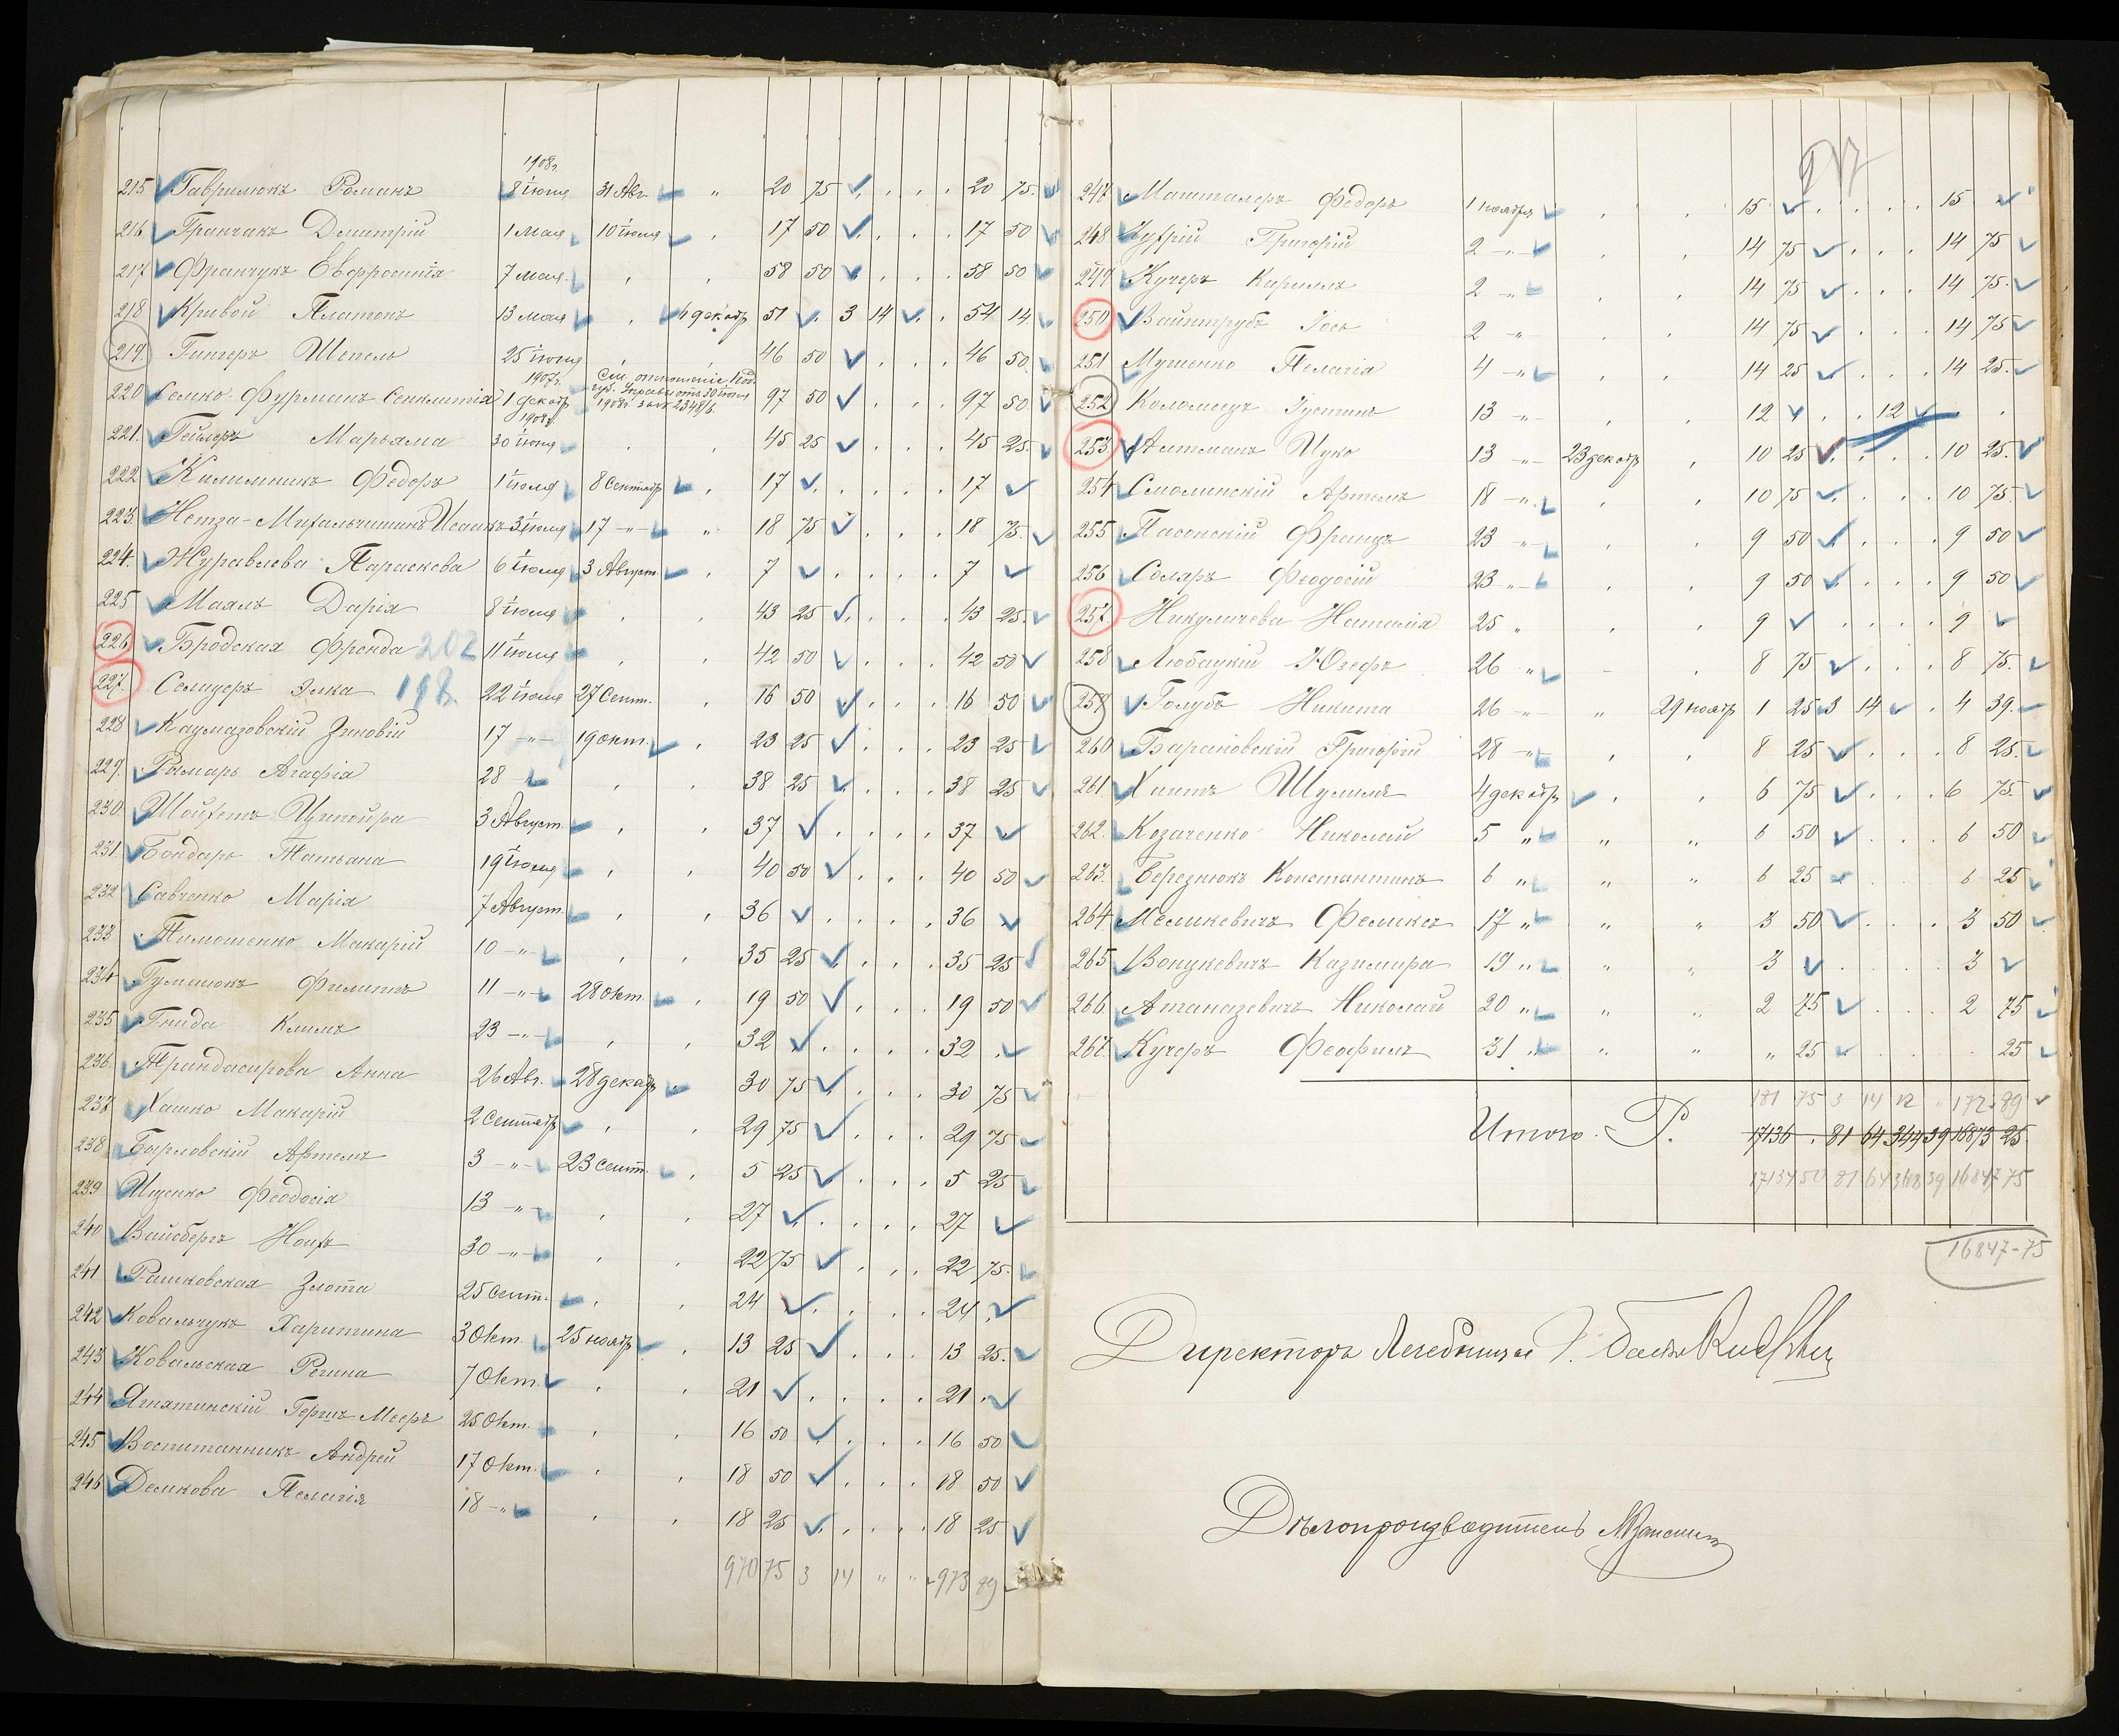 1908г.
215 Гаврилюкъ Романъ 8 іюня 31 Авг. " 20 75 . . . . 20 75.
216 Гранчакъ Дмитрій 1 мая 10 іюля . 17 50 . . . . 17 50
217 Франчукъ Евфросинія 7 мая . . 58 50 . . . . 58 50
218 Кривой Платонъ 13 мая . 6 декабр 51 . 3 14 . . 54 14.
219. Гингеръ Шепель 25 іюня . . 46 50 . . . 46 50
1907г. См. отношеніе Под.
губ. Управы отъ 30 іюня
220 Семко-Фурманъ Сенклитія 1 декабр 1908г за № 2348/6. 97 50 . . . 97 50
1908г.
221. Гейлеръ Марьяма 30 іюня . . 45 25 . . . 45 25.
222 Килимникъ Федоръ 1 іюля 8 Сентябр . 17 . . . . . 17
223. Нетза-Михальчишинъ Исаакъ 3 іюня 17 -"- " 18 75 . . . 18 75.
224. Журавлева Параскева 6 іюля 3 Август. . 7 . . . . 7
225 Маяль Дарія 8 іюля . . 43 25 . . . . 43 25.
226 Бродская Френда 202 11 іюля . . 42 50 . . . 42 50
227. Селицеръ Элка 198. 22 іюля 27 Сент. . 16 50 . . . 16 50
228 Каумазовскій Зиновій 17 -"- 19 окт. . 23 25 . . . 23 25
229. Рымарь Агафія 28 -"- . . 38 25 . . . . 38 25
230 Шойхетъ Ципойра 3 Август. . . 37 . . . . 37
231. Бондарь Татьана 19 іюля . . 40 50 . . . 40 50
232 Савченко Марія 7 Август. . . 36 . . . . 36
233 Тимошенко Макарій 10 -"- . . 35 25 . . . . 35 25
234 Гуменюкъ Филиппъ 11 -"- 28 окт. . 19 50 . . . 19 50
235 Гнида Климъ 23 -"- . . 32 . . . . 32
236. Триндасирова Анна 26 Авг. 28 декабр . 30 75 . . . 30 75
237 Хашко Макарій 2 Сентябр . . 29 75 . . . 29 75
238 Бырловскій Артемъ 3 -"- 23 Сент. . 5 25 . . . 5 25
239 Ищенко Феодосія 13 -"- . . 27 . . . . 27
240 Вайсбергъ Нонхъ 30 -"- . . 22 75 . . . 22 75.
241 Рашковская Злота 25 Сент. . . 24 . . . . 24
242 Ковальчукъ Харитина 3 Окт. 25 ноябр . 13 25 . . . 13 25.
243 Ковальская Регина 7 Окт. . . 21 . . . . 21
244 Ягнятинскій Гершъ-Мееръ 25 Окт. . . 16 50 . . . 16 50
245 Воспитанникъ Андрей 17 Окт. . . 18 50 . . . 18 50
246 Демкова Пелагія 18 -"- . . 18 25 . . . . 18 25
970 75 3 14 " " 973 89
247 Машталеръ Федоръ 1 ноября . . 15 . . . . . 15.
248 Цуфрій Григорій 2 -"- . . 14 75 . . . 14 75
249 Кучеръ Кириллъ 2 -"- . . 14 75 . . . 14 75.
250 Вайнтрубъ Іось 2 -"- . . 14 75 . . . 14 75
251 Мушенко Пелагія 4 -"- . . 14 25 . . . 14 25.
252 Коломеецъ Густинъ 13 -"- . . 12 . . 12 .
253. Антманъ Цуко 13 -"- 23 декабр . 10 25 . . . . 10 25.
254 Смолинскій Артемъ 18 -"- . . 10 75 . . . 10 75.
255 Пасонскій Францъ 23 -"- . . 9 50 . . . . 9 50
256 Соляръ Феодосій 23 -"- . . 9 50 . . . . 9 50
257. Никуличева Наталія 25 " . . 9 . . . . 9
258 Любацкій Юзефъ 26 " - . 8 75 . . . 8 75.
258 Голубъ Никита 26 -"- " 29 ноябр 1 25 3 14 . 4 39.
260 Барановскій Григорій 28 -"- . . 8 25 . . . 8 25.
261. Хаитъ Шулимъ 4 декабр . . 6 75 . . . 6 75.
262. Козаченко Николай 5 " " " 6 50 . . . 6 50
263. Березнюкъ Константинъ 6 " " " 6 25 . 6 25
264 Меликевичъ Феликсъ 17 " " " 3 50 . . . 3 50
265 Вонцкевичъ Казимира 19 " " " 3 . . . . 3
266. Атаназевичъ Николай 20 " " " 2 75 . . . 2 75
267. Кучеръ Феофилъ 31 " " " " 25 . . . . 25
181 75 3 14 12 " 172.89
Итого. Р. 17136 . 81 64 344 39 16873 25.
17134 50 81 64 368 39 16847 75
16847-75
Директоръ Лечебницы
Дѣлопроизводитель